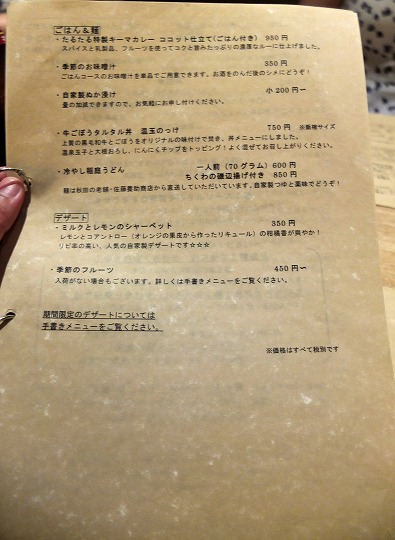 ごはん&麺
・たるたる特製キーマカレー ココット仕立て(ごはん付き) 950円
スパイスと乳製品、フルーツを使ってコクと旨みたっぷりの濃厚なルーに仕上げました。
・季節のお味噌汁 350円
ごはんコースのお味噌汁を単品でご用意できます。お酒をのんだ後のシメにどうぞ!
・自家製ぬか漬け 小 200円〜
量の加減できますので、お気軽にお申し付けください。
・牛ごぼうタルタル丼 温玉のっけ 750円 ※飯椀サイズ
上質の黒毛和牛とごぼうをオリジナルの味付けで焚き、丼メニューにしました。
温泉玉子と大根おろし、にんにくチップをトッピング!よく混ぜてお召し上がりください。
・冷やし稲庭うどん 一人前(70グラム)600円
ちくわの磯辺揚げ付き 850円
麺は秋田の老舗・佐藤養助商店から直送していただいています。自家製つゆと薬味でどうぞ!
デザート
・ミルクとレモンのシャーベット 350円
レモンとコアントロー(オレンジの果皮から作ったリキュール)の柑橘香が爽やか!
リピ率の高い、人気の自家製デザートです☆☆☆
・季節のフルーツ 450円〜
入荷がない場合もございます。詳しくは手書きメニューをご覧ください。
期間限定のデザートについては
手書きメニューをご覧ください。
※価格はすべて税別です